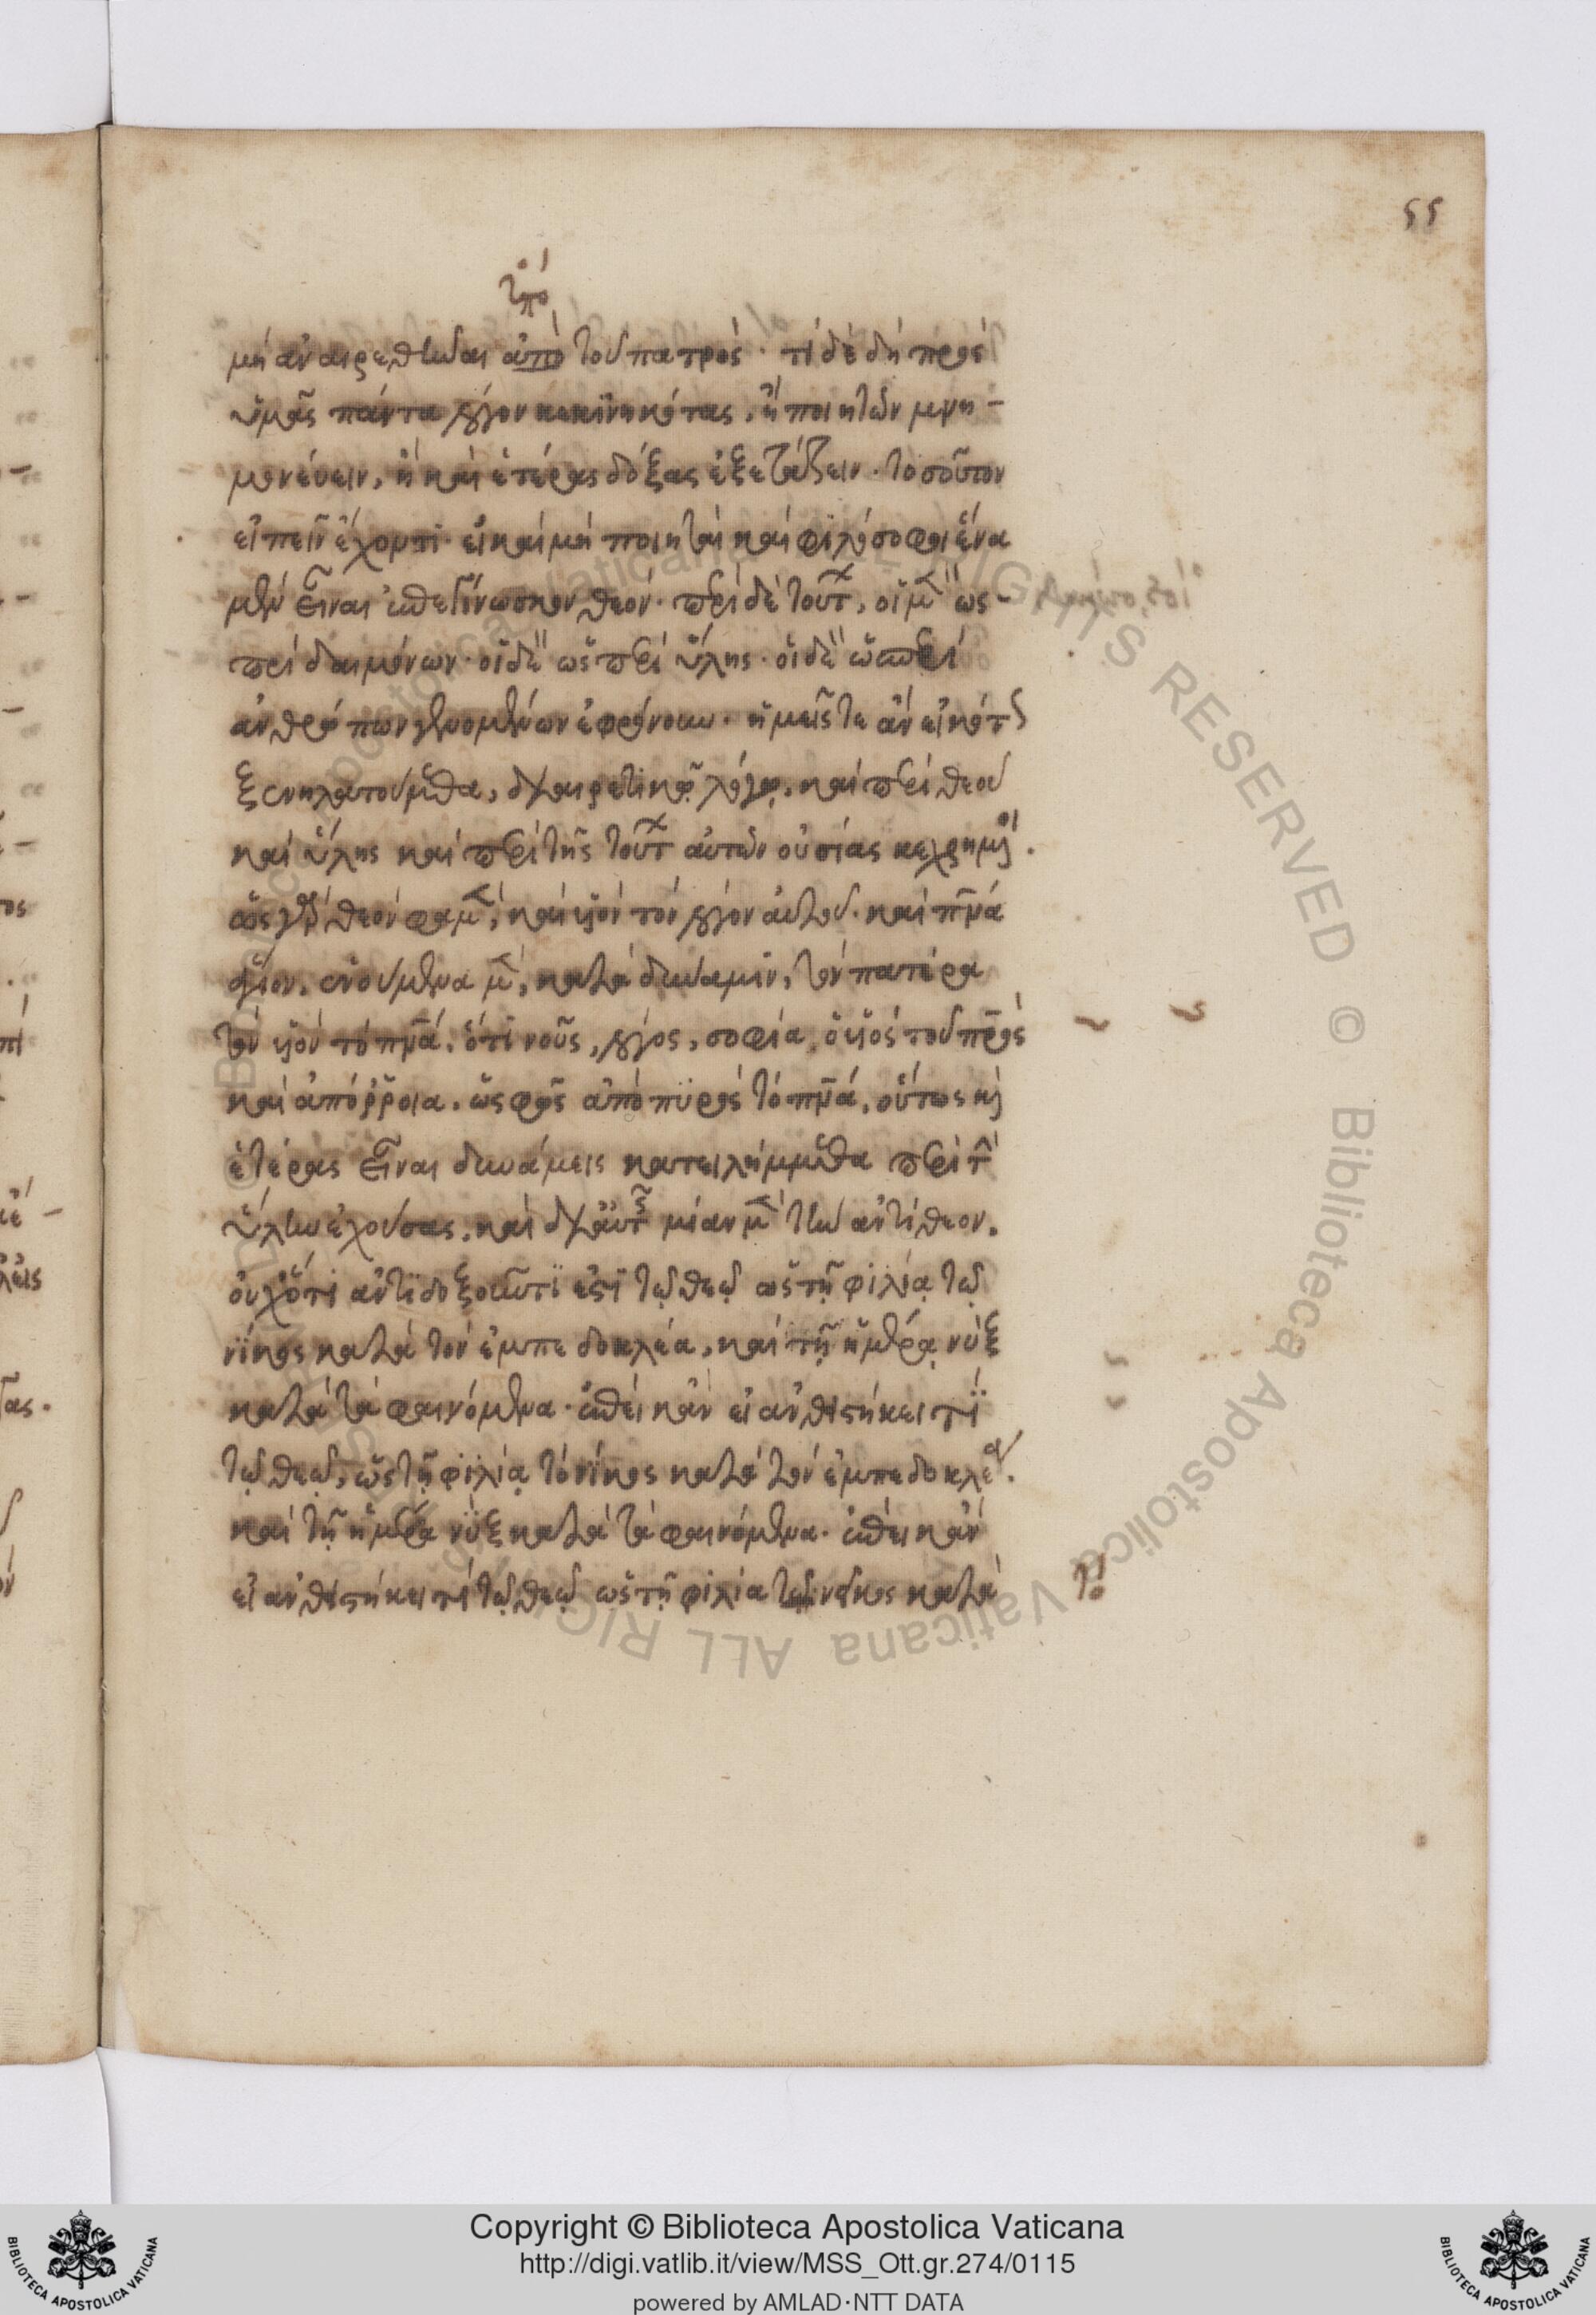 55
ὑπό
μὴ ἀναιρεθῆναι ἀπὸ τοῦ πατρός· τί δὲ δὴ πρὸς
ὑμᾶς πάντα λόγον κεκινηκότας, ἢ ποιητῶν μνη-
μονεύειν, ἢ καὶ ἑτέρας δόξας ἐξετάζειν· τοσοῦτον
εἰπεῖν ἔχοντι· εἰ καὶ μὴ ποιηταὶ καὶ φιλόσοφοι ἕνα
μὲν εἶναι ἐπεγίνωσκον θεόν· περὶ δὲ τούτ, οἱ μ ὡς
περὶ δαιμόνων· οἱ δὲ ὡς περὶ ὕλης· οἱ δὲ ὡς περὶ
ἀνθρώπων γενομένων ἐφρόνουν· ἡμεῖς τε ἂν εἰκότ
ξενηλατούμεθα, διαιρετικῷ λόγῳ, καὶ περὶ θεοῦ
καὶ ὕλης καὶ περὶ τῆς τούτ αὐτῶν οὐσίας κεχρημοι.
ὡς γὰρ θεόν φαμ, καὶ υἱὸν τὸν λόγον αὐτοῦ· καὶ πνα
ἅγιον, ἑνούμενα μ, κατὰ δύναμιν, τὸν πατέρα
τὸν υἱὸν τὸ πνα, ὅτι νοῦς, λόγος, σοφία, ὁ υἱὸς τοῦ προς
καὶ ἀπόρροια, ὡς φῶς ἀπὸ πυρὸς τὸ πνα, οὕτως κ
ἑτέρας εἶναι δυνάμεις κατειλήμμεθα περὶ τ
ὕλην ἐχούσας, καὶ δι' αὐτ μίαν μ τὴν ἀντίθεον.
οὐχ ὅτι ἀντιδοξοῦντι ἐστὶ τῷ θεῷ ὡς τῇ φιλίᾳ τῷ
νίκος κατὰ τὸν ἐμπεδοκλέα, καὶ τῇ ἡμέρᾳ νὺξ
κατὰ τὰ φαινόμενα· ἐπεὶ κἂν εἰ ἀνθιστήκει τι
τῷ θεῷ, ὡς τῇ φιλίᾳ τὸ νίκος κατὰ τὸν ἐμπεδοκλέα.
καὶ τῇ ἡμέρᾳ νὺξ κατὰ τὰ φαινόμενα· ἐπεὶ κἂν
εἰ ἀνθιστήκει τι τῷ θεῷ ὡς τῇ φιλία τῷ νεῖκος κατὰ
τὸ
© Biblioteca Apostolica Vaticana ALL RIGHTS RESERVED
Copyright © Biblioteca Apostolica Vaticana
http://digi.vatlib.it/view/MSS_Ott.gr.274/0115
powered by AMLAD·NTT DATA
BIBLIOTECA APOSTOLICA VATICANA
BIBLIOTECA APOSTOLICA VATICANA